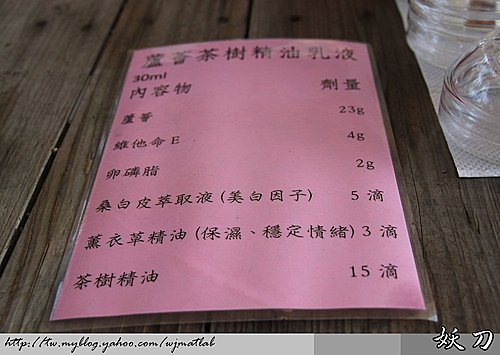 蘆薈茶樹精油乳液
30ml
內容物 劑量
蘆薈 23g
維他命E 4g
卵磷脂 2g
桑白皮萃取液(美白因子) 5 滴
薰衣草精油(保濕、穩定情緒) 3 滴
茶樹精油 15 滴
http://tw.myblog.yahoo.com/wjmatlab
妖刀